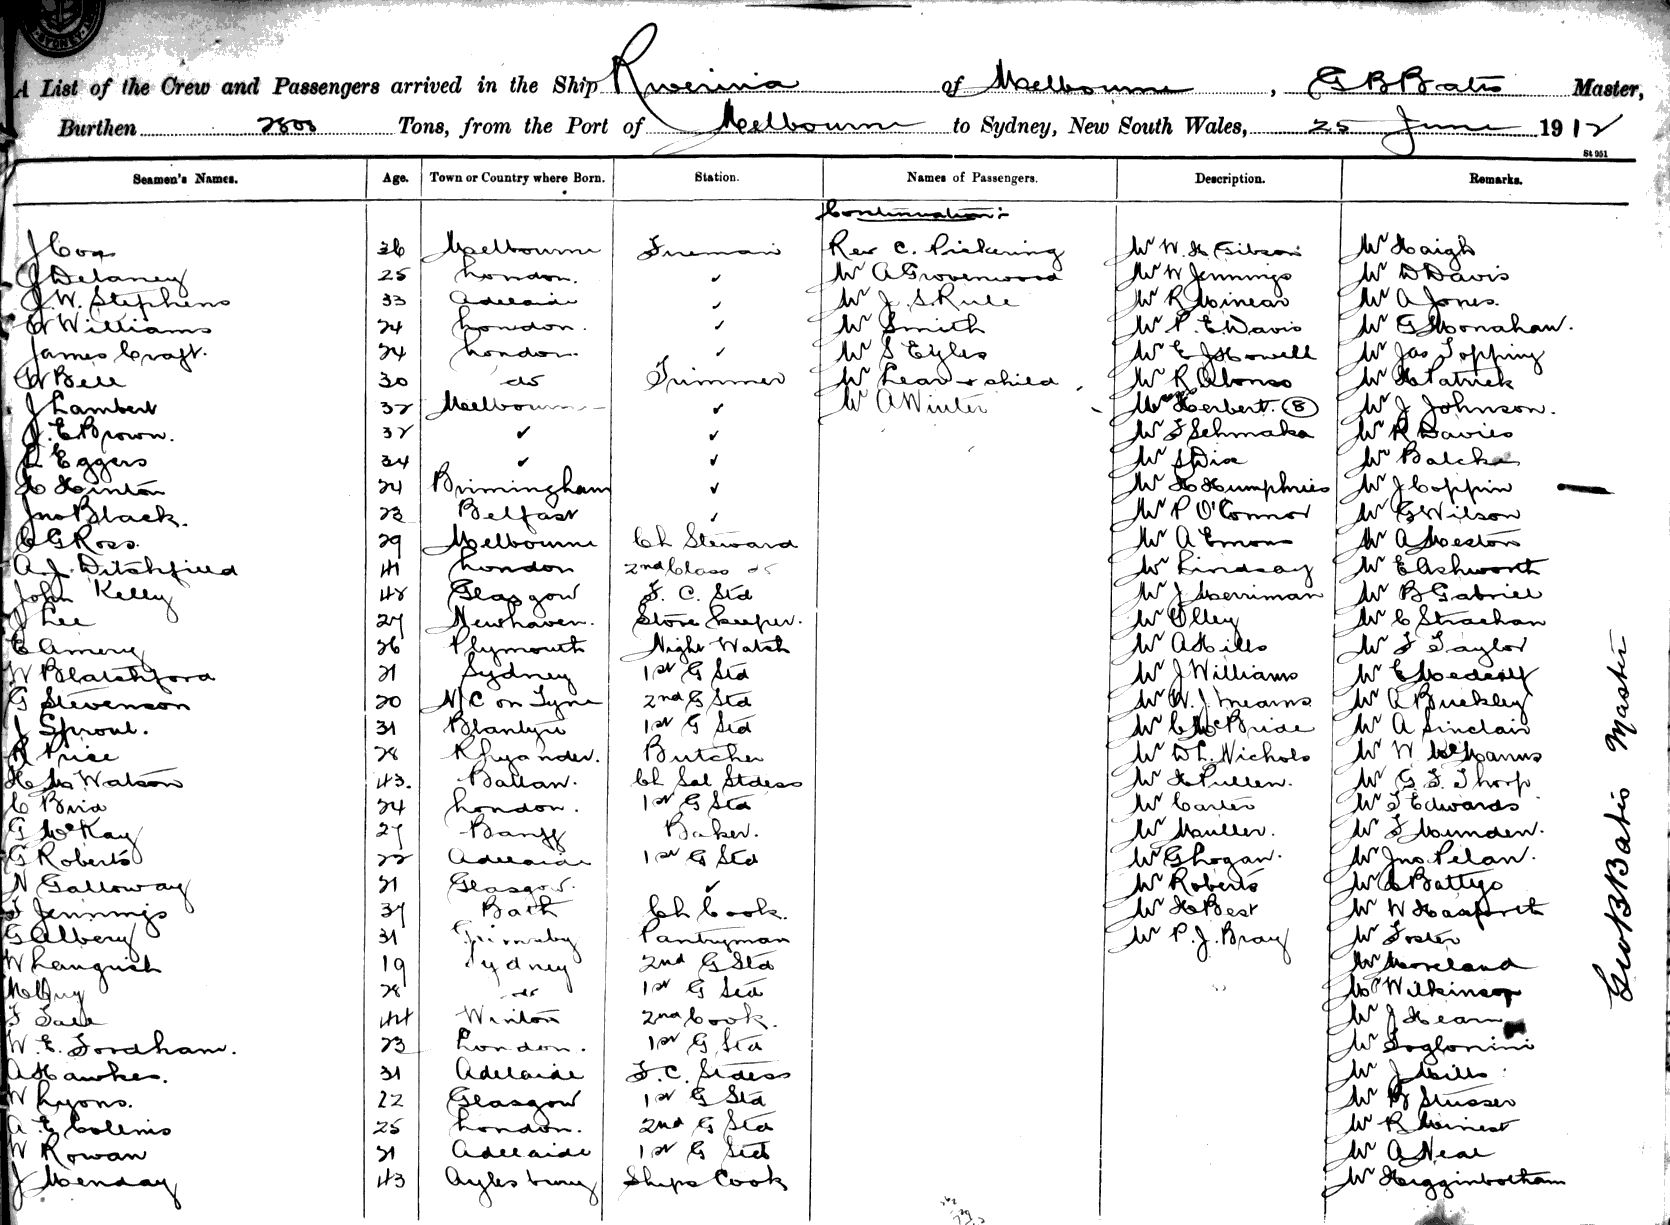 SYDNEY
A List of the Crew and Passengers arrived in the Ship Riverina of Melbourne, G B Bates Master,
Burthen 2800 Tons, from the Port of Melbourne to Sydney, New South Wales, 25 June 1912
St 951
Seamen's Names. Age. Town or Country where Born. Station. Names of Passengers. Description. Remarks.
Continuation:-
J Cox 36 Melbourne Fireman Rev C. Pickering Mr W. H Gibson Mr Haigh
J Delaney 25 London. ✓ Mr A Grovenwood Mr W Jennings Mr D Davis
J. W. Stephens 33 Adelaide ✓ Mr J. S. Rule Mr R Minear Mr A Jones.
W Williams 24 London. ✓ Mr Smith Mr P. E Davis Mr G Monahan.
James Craft. 24 London. ✓ Mr S Eyles Mr E J Howell Mr Jas Topping
W Bell 30 do Trimmer Mr Lear & child Mr R Alonso Mr H Patrick
J Lambert 32 Melbourne ✓ Mr A Winter Herbert. (8) Mr J Johnson.
J. E Brown. 32 ✓ ✓ Mr F Schmaka Mr R Davies
Eggers 34 ✓ ✓ Mr S Dix Mr Balcke
H Hinton 24 Brimingham ✓ Mr H Humphries Mr J Coppin
Jno Black. 23 Belfast ✓ Mr P O'Connor Mr G Wilson
C G Ross. 29 Melbourne Ch Steward Mr A Emons Mr A Meston
A. J. Ditchfield 41 London 2nd Class do Mr Lindsay Mr E Ashworth
John Kelly 48 Glasgow F. C. Std Mr J Merriman Mr B Gabriel
J Lee 27 Newhaven. Store keeper. Mr Olley Mr C Strachan
E Amery 36 Plymouth Night Watch Mr A Hills Mr F Taylor
W Blatchford 21 Sydney 1st G Std Mr J Williams Mr E Medcalf
G Stevenson 20 N/C on Tyne 2nd G Std Mr W. J. Mearns Mr A Buckley
J Sproul. 31 Blantyre 1st G Std Mr C McBride Mr A Sinclair
R Price 28 Rhyander. Butcher Mr D L. Nichols Mr W McManus
H M Watson 43. Ballan. Ch Sal Stdess Mr H Pullen. Mr G. F. Thorp
C Bird 24 London. 1st G Std Mr Carter Mr T Edwards
G McKay 27 Banff Baker. Mr Muller. Mr F Mumden.
G Roberts 22 Adelaide 1st G Std Mr G Hogan. Mr Jno Pelan.
N Galloway 21 Glasgow. ✓ Mr Roberts Mr C Battys
F Jennings 37 Bath Ch Cook. Mr H Best Mr W Haxforth
G Albery 31 Grimsby Pantryman Mr P. J. Bray Mr Foster
W Languish 19 Sydney 2nd G Std Mr Moreland
M Guy 28 do 1st G Std Wilkinson
F Tall 44 Winton 2nd Cook. Mr J Hearn
W. E. Fordham. 23 London. 1st G Std Mr Soglonini
A Hawkes. 31 Adelaide F. C. Stdess Mr J Mills
W Lyons. 22 Glasgow 1st G Std Mr B Stusser
A E Collins 25 London. 2nd G Std Mr R Minest
W Rowan 21 Adelaide 1st G Std Mr A Neal
J Menday 43 Aylesbury Ships Cook Mr Higginbotham
Geo B Bates Master